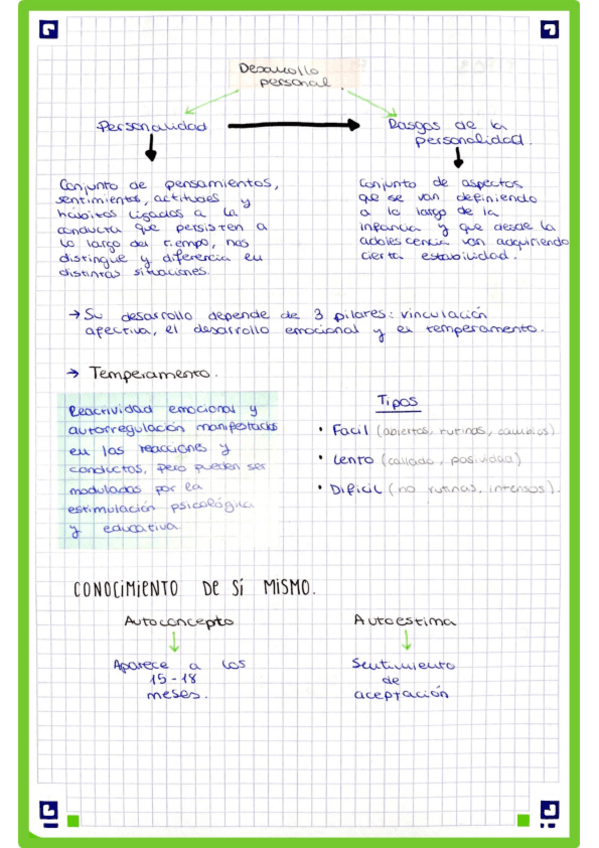 Desarrollo
personal.
Personalidad
Rasgos de la
personalidad.
Conjunto de pensamientos,
sentimientos, actitudes y
hábitos ligados a la
conducta que persisten a
lo largo del tiempo, nos
distingue y diferencia en
distintas situaciones.
Conjunto de aspectos
que se van definiendo
a lo largo de la
infancia y que desde la
adolescencia van adquiriendo
cierta estabilidad.
→ Su desarrollo depende de 3 pilares: vinculación
afectiva, el desarrollo emocional y el temperamento.
→ Temperamento.
Reactividad emocional y
autorregulación manifestadas
en las reacciones y
conductas, pero pueden ser
moduladas por la
estimulación psicológica
y educativa
Tipos
• Facil (abiertos, rutinas, cambios)
• Lento (callado, pasividad)
• Dificil (no rutinas, intensos).
CONOCIMIENTO DE SÍ MISMO.
Autoconcepto
Aparece a los
15-18
meses.
Autoestima
Sentimiento
de
aceptación